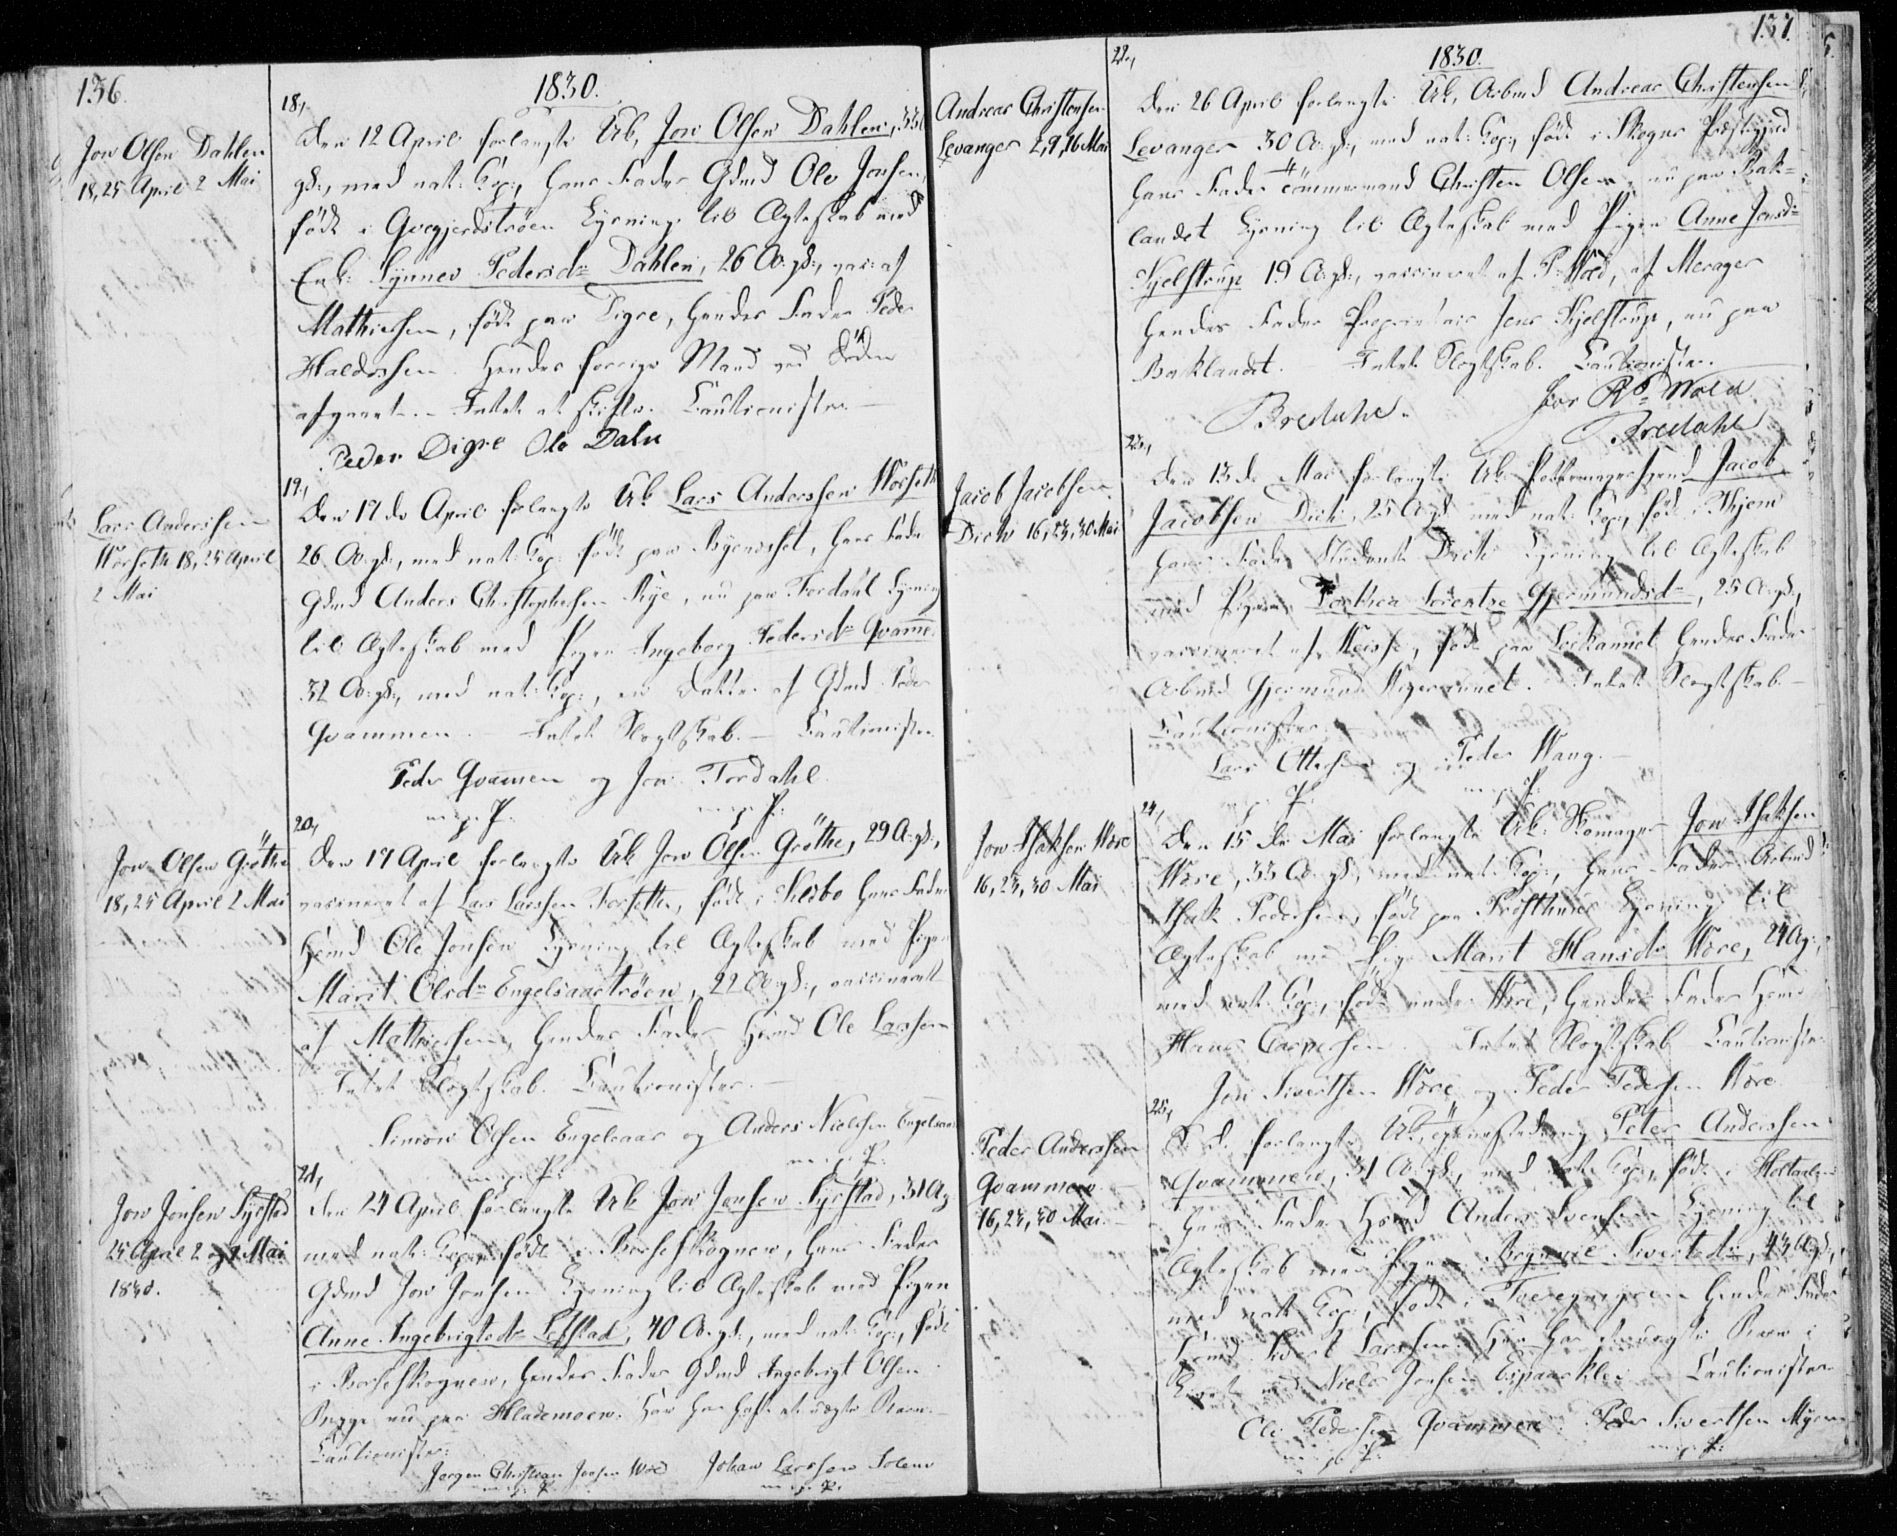 136.
1830.
Jon Olsen Dahlen
18, 25 April 2 Mai
18,
Den 12 April forlangte Uk, Jon Olsen Dahlen,
gl:, med nat: Kop:, hans Fader Gdmd Ole Jonsen,
født i Qvegjerdstrøen Lysning til Ægteskab med
Enke Synnev Pedersdr Dahlen, 26 Aar gl:, vac: af
Mathiesen, født paa Digre, hendes Fader Peder
Haldorsen. Hendes forrige Mand ved Døden
afgaaet. - Intet at skifte. Cautionister -
Peder Digre Ole Dahl
Lars Anderssen
Worseth 18, 25 April
2 Mai
19,
Den 17 de April forlangte Uk Lars Anderssen Worseth
26 Aar gl:, med nat: Kop: født paa Byenesset, hans Fader
Gdmd Anders Christophersen Rye, nu paa Fordahl Lysning
til Ægteskab med Pigen Ingeborg Pedersdr Qvamme
32 Aar gl:, med nat: Kop:, en Datter af Gdmd Peder
Qvammen. - Intet Slegtskab. - Cautionister
Peder Qvamen og Jon Fordahl.
m. p. P. m. p. P.
Jon Olsen Grøthe
18, 25 April 2 Mai
20,
Den 17 April forlangte Uk Jon Olsen Grøthe, 29 A: gl:,
vaccineret af Lars Larssen Forseth, født i Kleboe hans Fader
Hsmd Ole Jonsen Lysning til Ægteskab med Pigen
Marit Olsdr Engelsaastrøen, 22 A: gl:, vaccineret
af Mathiesen, hendes Fader Hsmd Ole Larssen
Intet Slegtskab. Cautionister. -
Simon Olsen Engelsaas og Anders Nielsen Engelsaas
m. p. P: m. p. P:
Jon Jonsen Syrstad
25 April 2 og 9 Mai
1830.
21,
Den 24 April forlangte Uk Jon Jonsen Syrstad, 31 A: gl
med nat: Kop: født i Børseskognen, hans Fader
Gdmd Jon Jonsen Lysning til Ægteskab med Pigen
Anne Ingebrigtsdr Lefstad, 40 A: gl:, med nat: Kop:, født
i Børseskognen, hendes Fader Gdmd Ingebrigt Olsen
Bygge nu paa Hlademoen. Hun har haft et uægte Barn.
Cautionister:
Jørgen Christian Jonsen Wold Johan Larssen Solem
m. p. P. m. p. P.
137.
1830.
Andreas Christensen
Levanger 2, 9, 16 Mai
22,
Den 26 April forlangte Uk, Arbmd Andreas Christensen
Levanger 30 A: gl:, med nat: Kop:, født i Skogns Præstegjeld
hans Fader Tømmermand Christen Olsen, nu paa Bak-
landet Lysning til Ægteskab med Pigen Anne Jensdr
Kjelstrup 19 A: gl:, vaccineret af P: Wold, af Merager
hendes Fader Proprietair Jens Kjelstrup, nu paa
Baklandet. - Intet Slegtskab. Cautionister.
Bredahl. for Wold
Bredahl
Jacob Jacobsen
Dichs 16, 23, 30 Mai
23,
Den 13 de Mai forlangte Uk Pottemagersvend Jacob
Jacobsen Dichs, 25 A: gl: med nat: Kop:, født i
hans Fader Student Dichs Lysning til Ægteskab
med Pigen Dorthea Lorentze Gjermundsdr, 25 A: gl:,
vaccineret af Weisse, født paa hendes Fader
Arbmd Gjermund. Intet Slegtskab. -
Cautionister:
Lars Ottesen og Peder Wang. -
m. p. P. m. p. P.
Jon Isaksen Wære
16, 23, 30 Mai
24,
Den 15 de Mai forlangte Uk: Skomager Jon Isaksen
Wære, 33 A: gl:, med nat: Kop:, hans Fader Arbmd
Isak Pedersen, født paa Lysning til
Ægteskab med Pige Marit Hansdr Wære, 24 A: gl:,
med nat: Kop:, født under Wære, hendes Fader Hsmd
Hans Caspersen. Intet Slegtskab Cautionister.
Jon Sivertsen Wære og Peder Pedersen Wære
Peder Anderssen
Qvammen
16, 23, 30 Mai. -
25,
S. D. forlangte Uk, Peter Anderssen
Qvammen, 31 A: gl:, med nat: Kop:, født i Holtaalen
hans Fader Hsmd Anders Svensen Lysning til
Ægteskab med Pigen Sivertsdr, 43 A: gl:,
med nat: Kop:, født i hendes Fader
Hsmd Sivert Larssen. Hun har et uægte Barn i
med Niels Jonsen. Cautionister
Ole Pedersen Qvammen. Peder Sivertsen Myren
m. p. P. m. p. P.